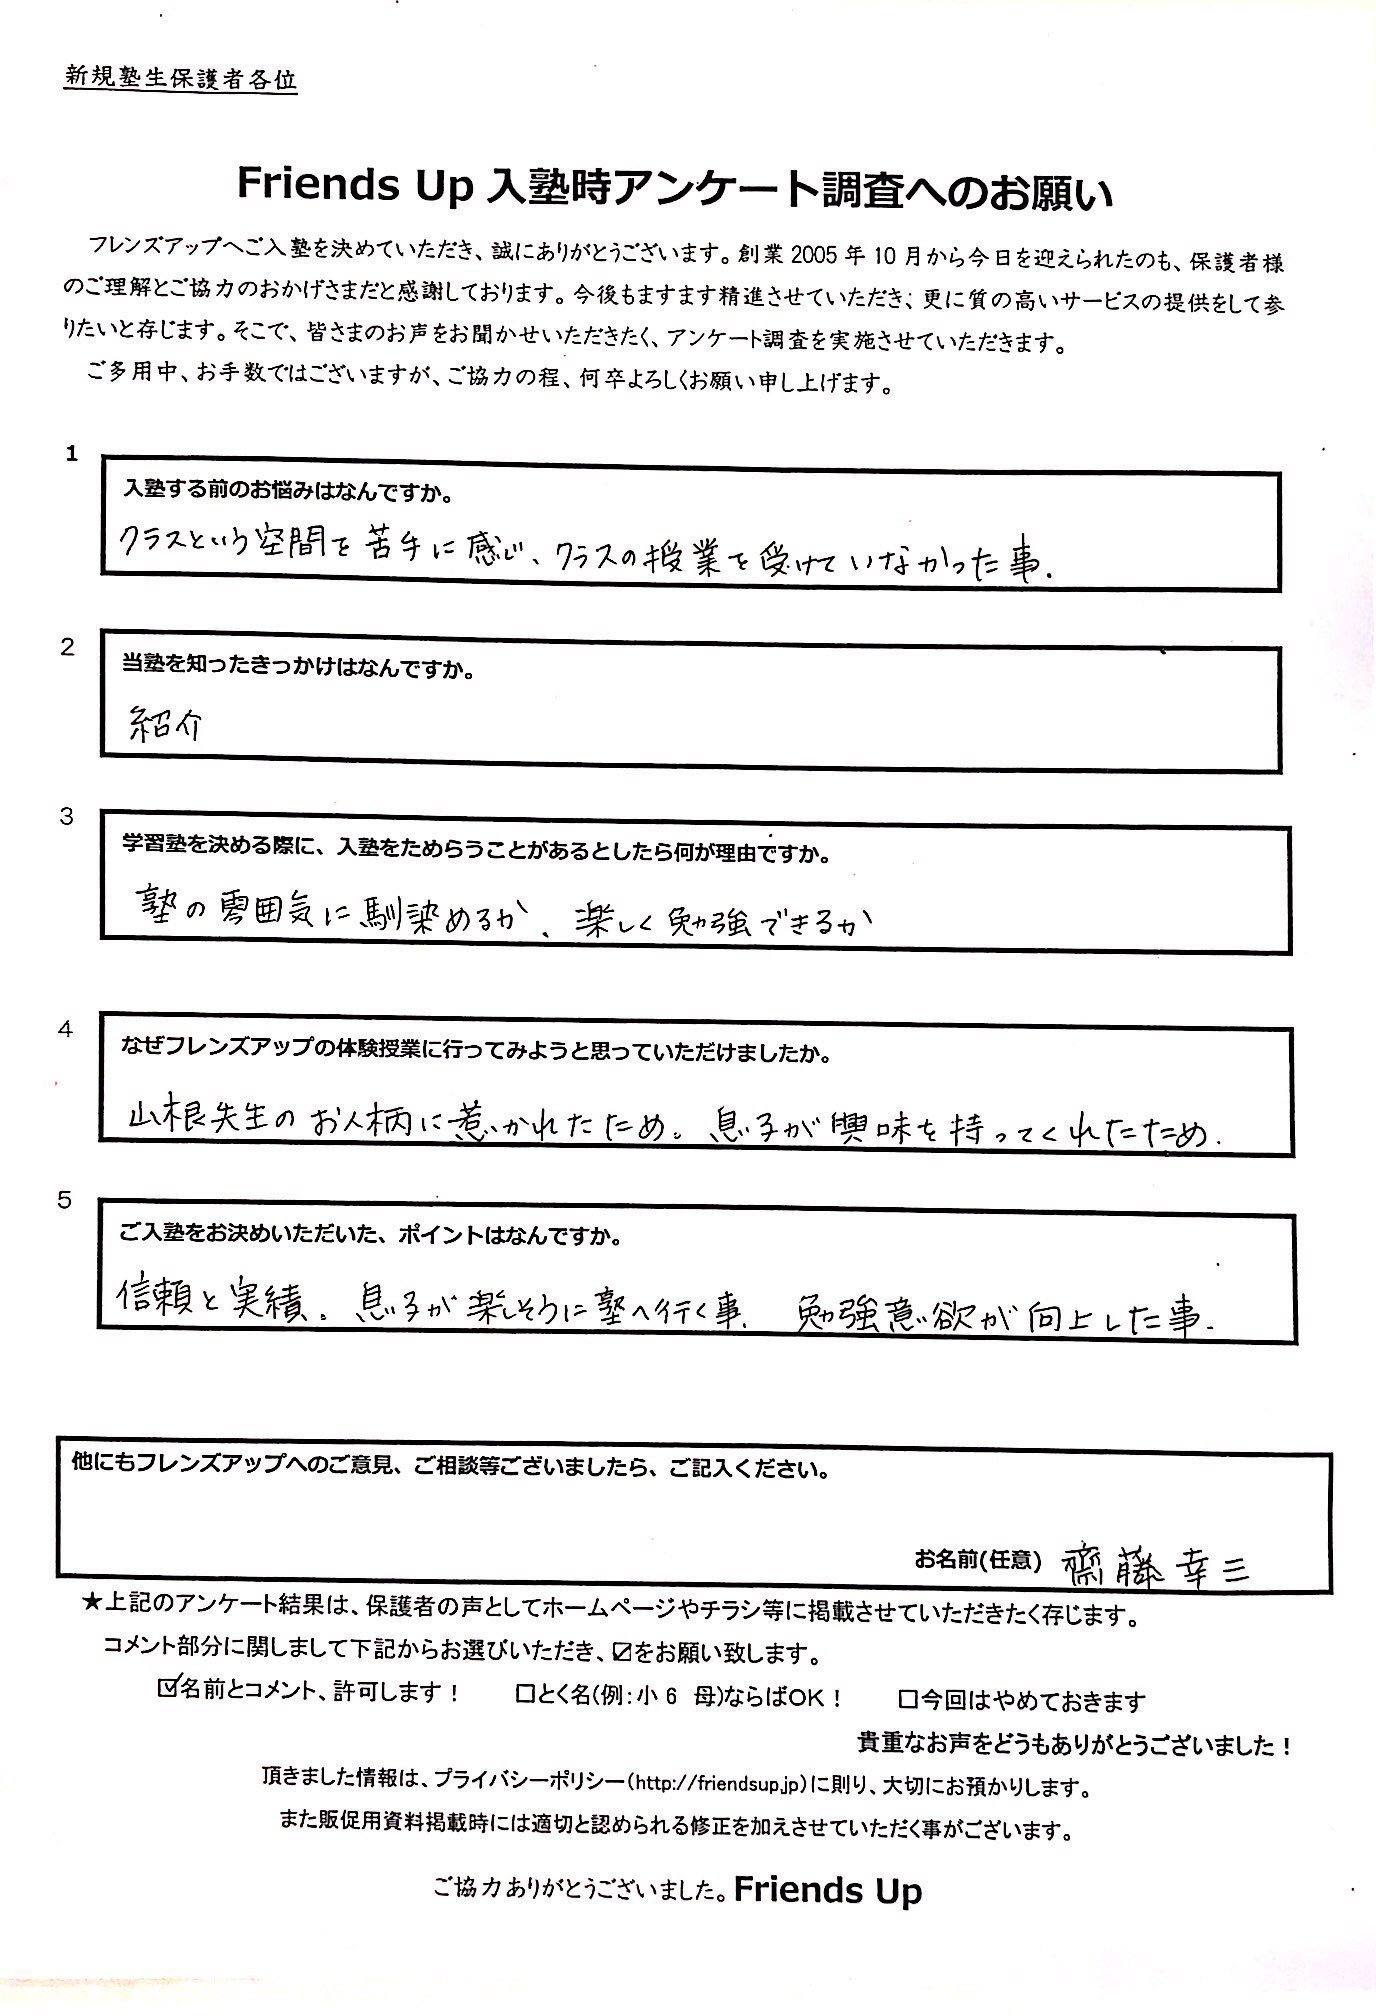 新規塾生保護者各位
Friends Up 入塾時アンケート調査へのお願い
フレンズアップへご入塾を決めていただき、誠にありがとうございます。創業 2005 年 10 月から今日を迎えられたのも、保護者様
のご理解とご協力のおかげさまだと感謝しております。今後もますます精進させていただき、更に質の高いサービスの提供をして参
りたいと存じます。そこで、皆さまのお声をお聞かせいただきたく、アンケート調査を実施させていただきます。
ご多用中、お手数ではございますが、ご協力の程、何卒よろしくお願い申し上げます。
1
入塾する前のお悩みはなんですか。
クラスという空間を苦手に感じ、クラスの授業を受けていなかった事.
2
当塾を知ったきっかけはなんですか。
紹介
3
学習塾を決める際に、入塾をためらうことがあるとしたら何が理由ですか。
塾の雰囲気に馴染めるか、楽しく勉強できるか
4
なぜフレンズアップの体験授業に行ってみようと思っていただけましたか。
山根先生のお人柄に惹かれたため。息子が興味を持ってくれたため.
5
ご入塾をお決めいただいた、ポイントはなんですか。
信頼と実績。息子が楽しそうに塾へ行く事. 勉強意欲が向上した事.
他にもフレンズアップへのご意見、ご相談等ございましたら、ご記入ください。
お名前(任意) 齋藤幸三
★上記のアンケート結果は、保護者の声としてホームページやチラシ等に掲載させていただきたく存じます。
コメント部分に関しまして下記からお選びいただき、☑をお願い致します。
☑名前とコメント、許可します！ □とく名(例:小6 母)ならばOK！ □今回はやめておきます
貴重なお声をどうもありがとうございました！
頂きました情報は、プライバシーポリシー(http://friendsup.jp)に則り、大切にお預かりします。
また販促用資料掲載時には適切と認められる修正を加えさせていただく事がございます。
ご協力ありがとうございました。Friends Up